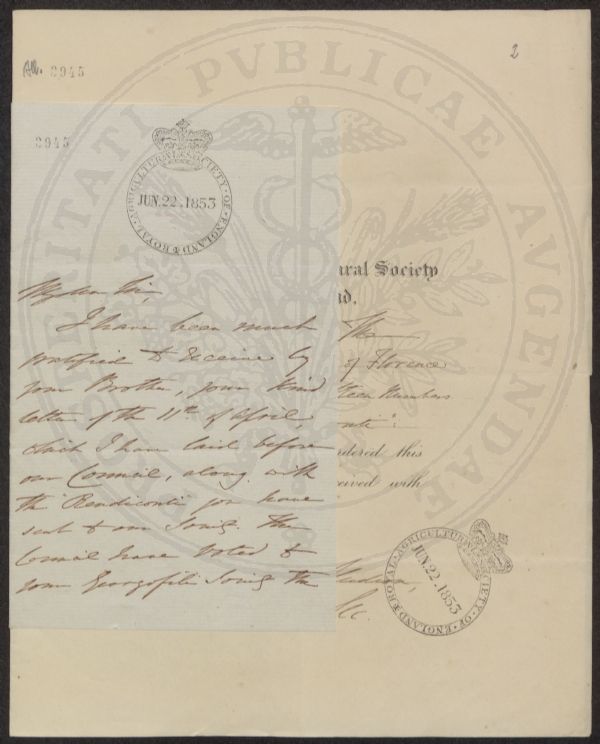 2
All. 2945
2945
ROYAL AGRICULTURAL SOCIETY OF ENGLAND
JUN. 22. 1853
My dear Sir,
I have been much
gratified to receive by
your Brother, your kind
letter of the 11th of April,
which I have laid before
our Council, along with
the "Rendiconti" you have
sent to our Society. The
Council have voted to
your Georgofili Society the
ural Society
nd.
The
of Florence
teen Numbers
onti":
rdered this
ceived with
Hudson,
Sec.
ROYAL AGRICULTURAL SOCIETY OF ENGLAND
JUN. 22. 1853
PROSPERITATI PUBLICAE AUGENDAE